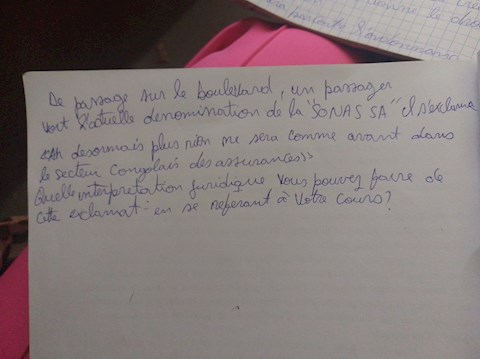 De passage sur le boulevard, un passager
voit l'actuelle denomination de la "SONAS SA" il s'exclama
"Ah desormais plus rien ne sera comme avant dans
le secteur Congolais des assurances"
Quelle interpretation juridique vous pouvez faire de
cette exclamat° en se referant à votre cours?